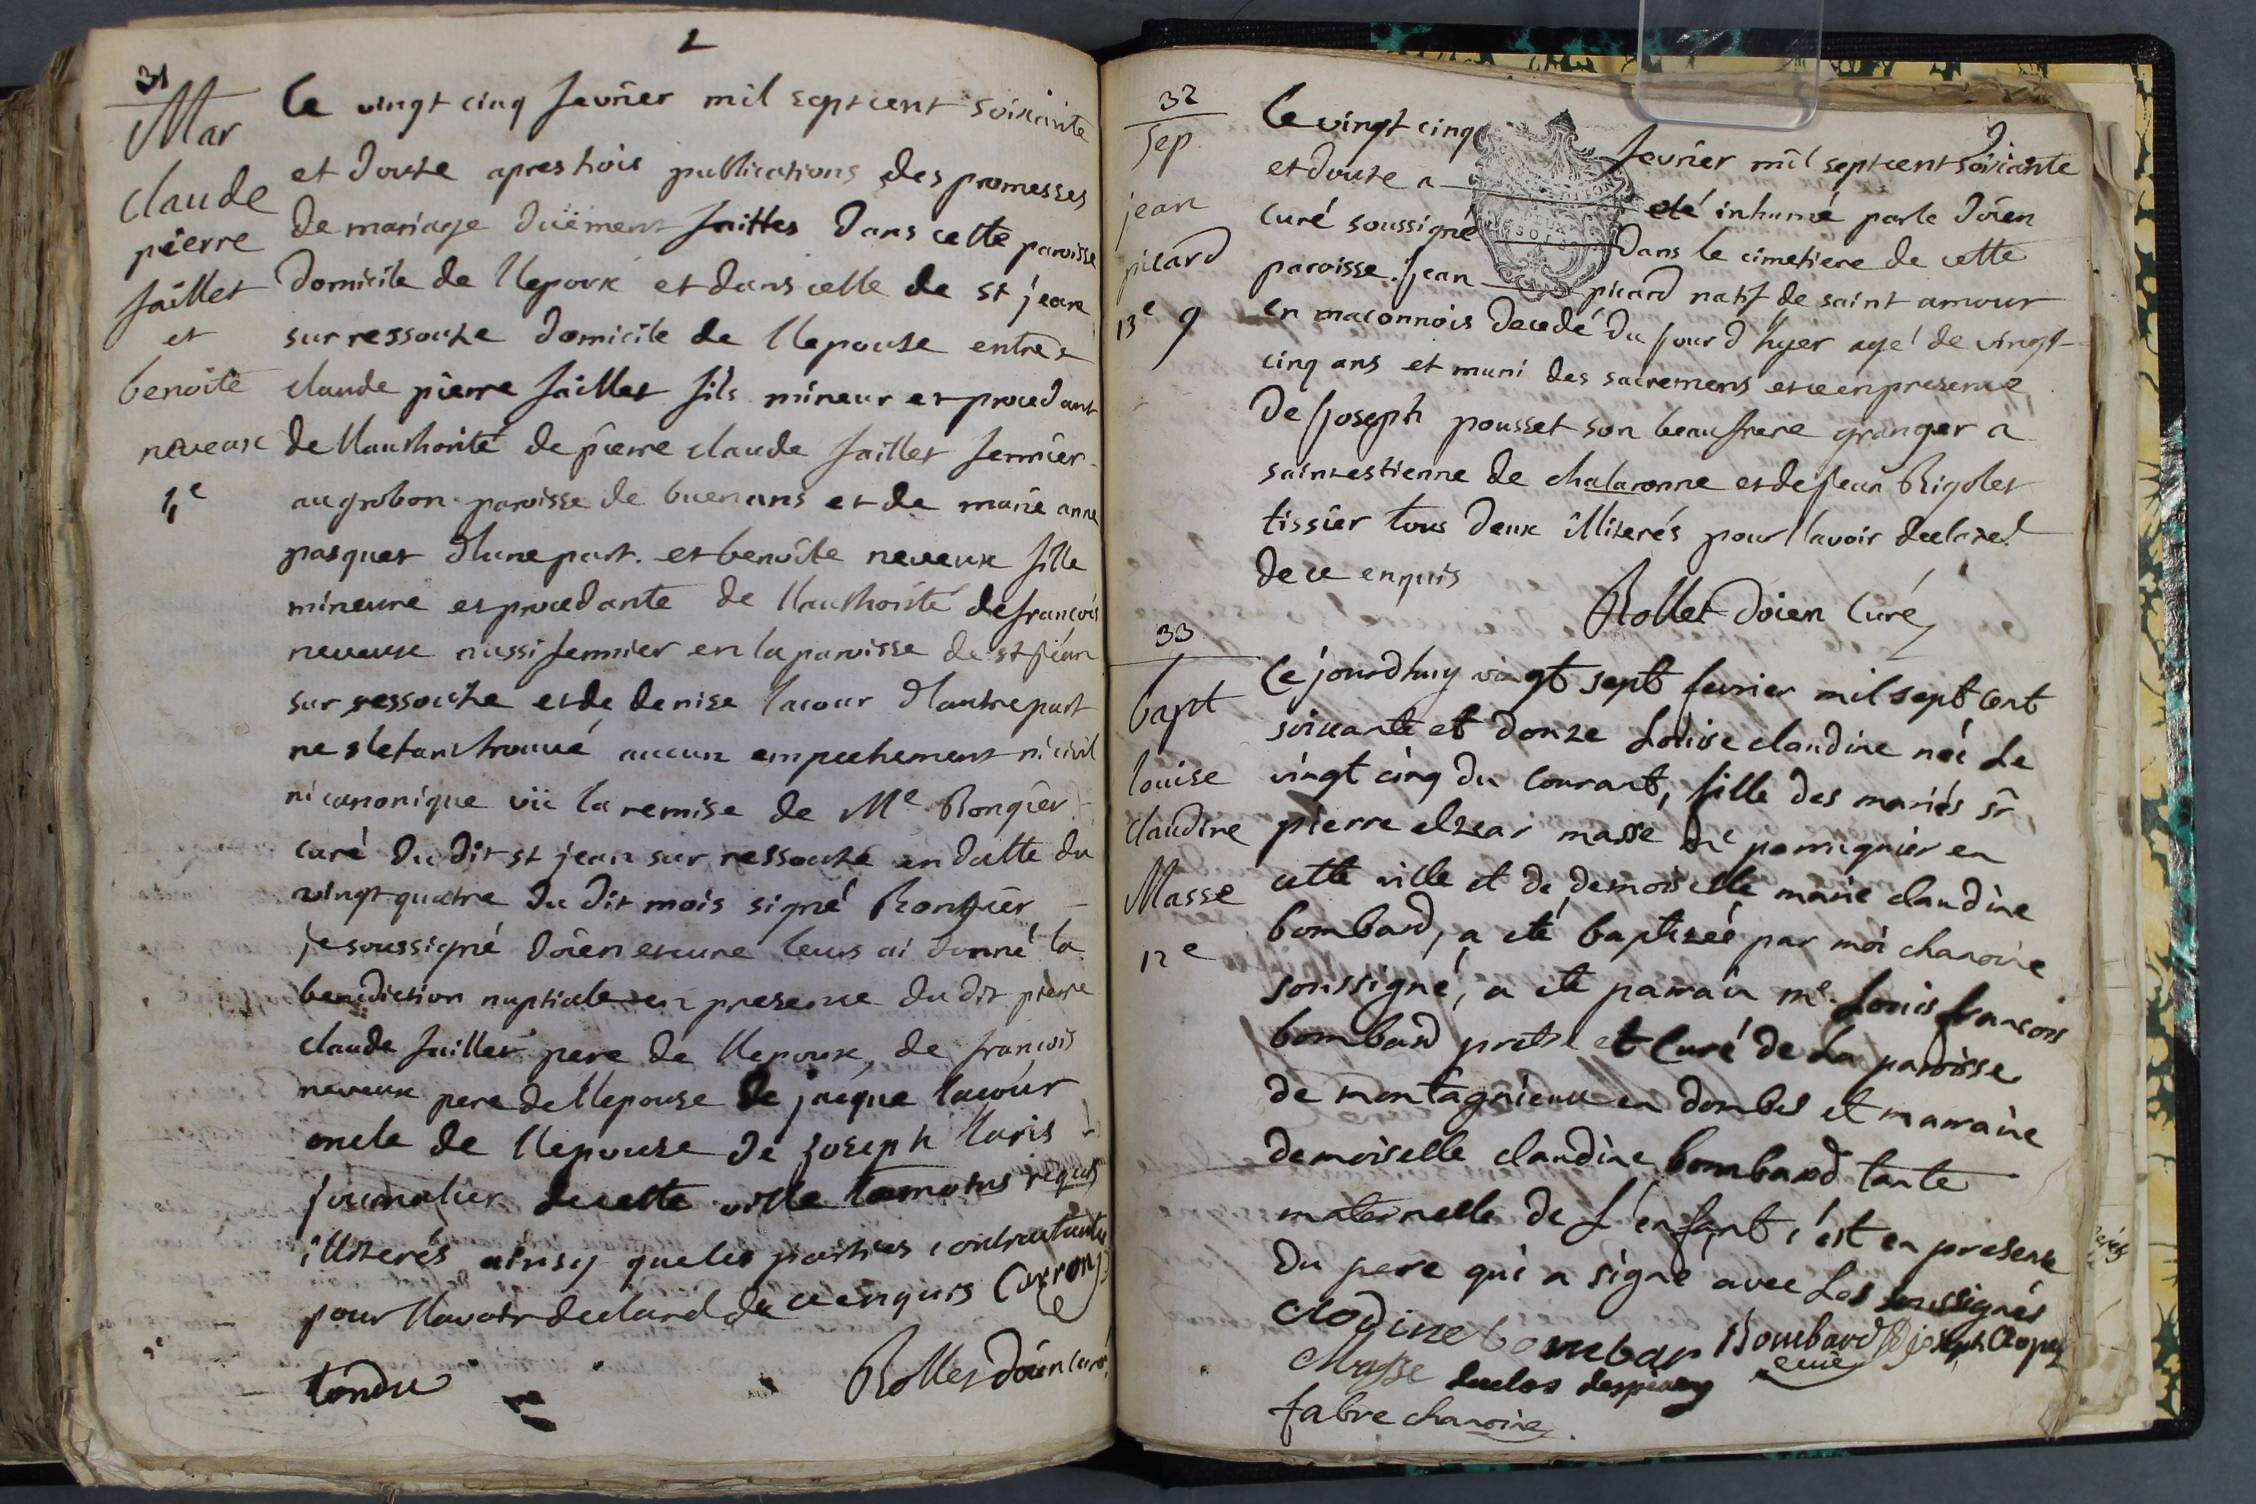 2
31
Mar
claude
pierre
faillet
et
benoite
neveux
4e
Le vingt cinq fevrier mil sept cent soixante
et douze apres trois publications des promesses
de mariage duëment faittes dans cette paroisse
domicile de l'epoux et dans celle de st jean
sur ressouze domicile de l'epouse entre
claude pierre faillet fils mineur et procedant
de l'authorité de pierre claude faillet fermier
au grobon paroisse de buenans et de marie anne
pasquet d'une part. et benoite neveux fille
mineure et procedante de l'authorité de francois
neveux aussi fermier en la paroisse de st jean
sur ressouze et de denise lacour d'autre part
ne s'etant trouvé aucun empechement ni civil
ni canonique vü la remise de Me Rongier
curé du dit st jean sur ressouze en datte du
vingt quatre du dit mois signé Rongier
je soussigné doien et curé leurs ai donné la
benediction nuptiale en presence du dit pierre
claude faillet pere de l'epoux, de francois
neveux pere de l'epouse de jacque lacour
oncle de l'epouse de joseph
journalier de cette ville temoins requis
illiterés ainsy que les parties contractantes
pour l'avoir declaré de ce enquis
tondu
Rollet doien curé
32
Sep
jean
picard
13e 9
Le vingt cinq fevrier mil sept cent soixante
et douze a eté inhumé par le doien
curé soussigné dans le cimetiere de cette
paroisse. jean picard natif de saint amour
en maconnois decedé du jour d'hyer agé de vingt
cinq ans et muni des sacremens et ce en presence
de joseph pousset son beau frere granger a
saint estienne de chalaronne et de jean Rigolet
tissier tous deux illiterés pour l'avoir declaré
de ce enquis
Rollet doien curé
33
bapt
louise
claudine
Masse
12e
Ce jourdhuy vingt sept fevrier mil sept cent
soixante et douze Louise claudine née le
vingt cinq du courant, fille des mariés sr
pierre elzear masse me perruquier en
cette ville et de demoiselle marie claudine
bombard, a eté baptizée par moi chanoine
soussigné, a eté parrain me. Louis francois
bombard pretre et Curé de La paroisse
de montagnieux en dombes et marraine
demoiselle claudine bombard tante
maternelle de L'enfant c'est en presence
du pere qui a signé avec Les soussignés
clodine bombar Bombard joseph
Masse duclos curé
fabre chanoine